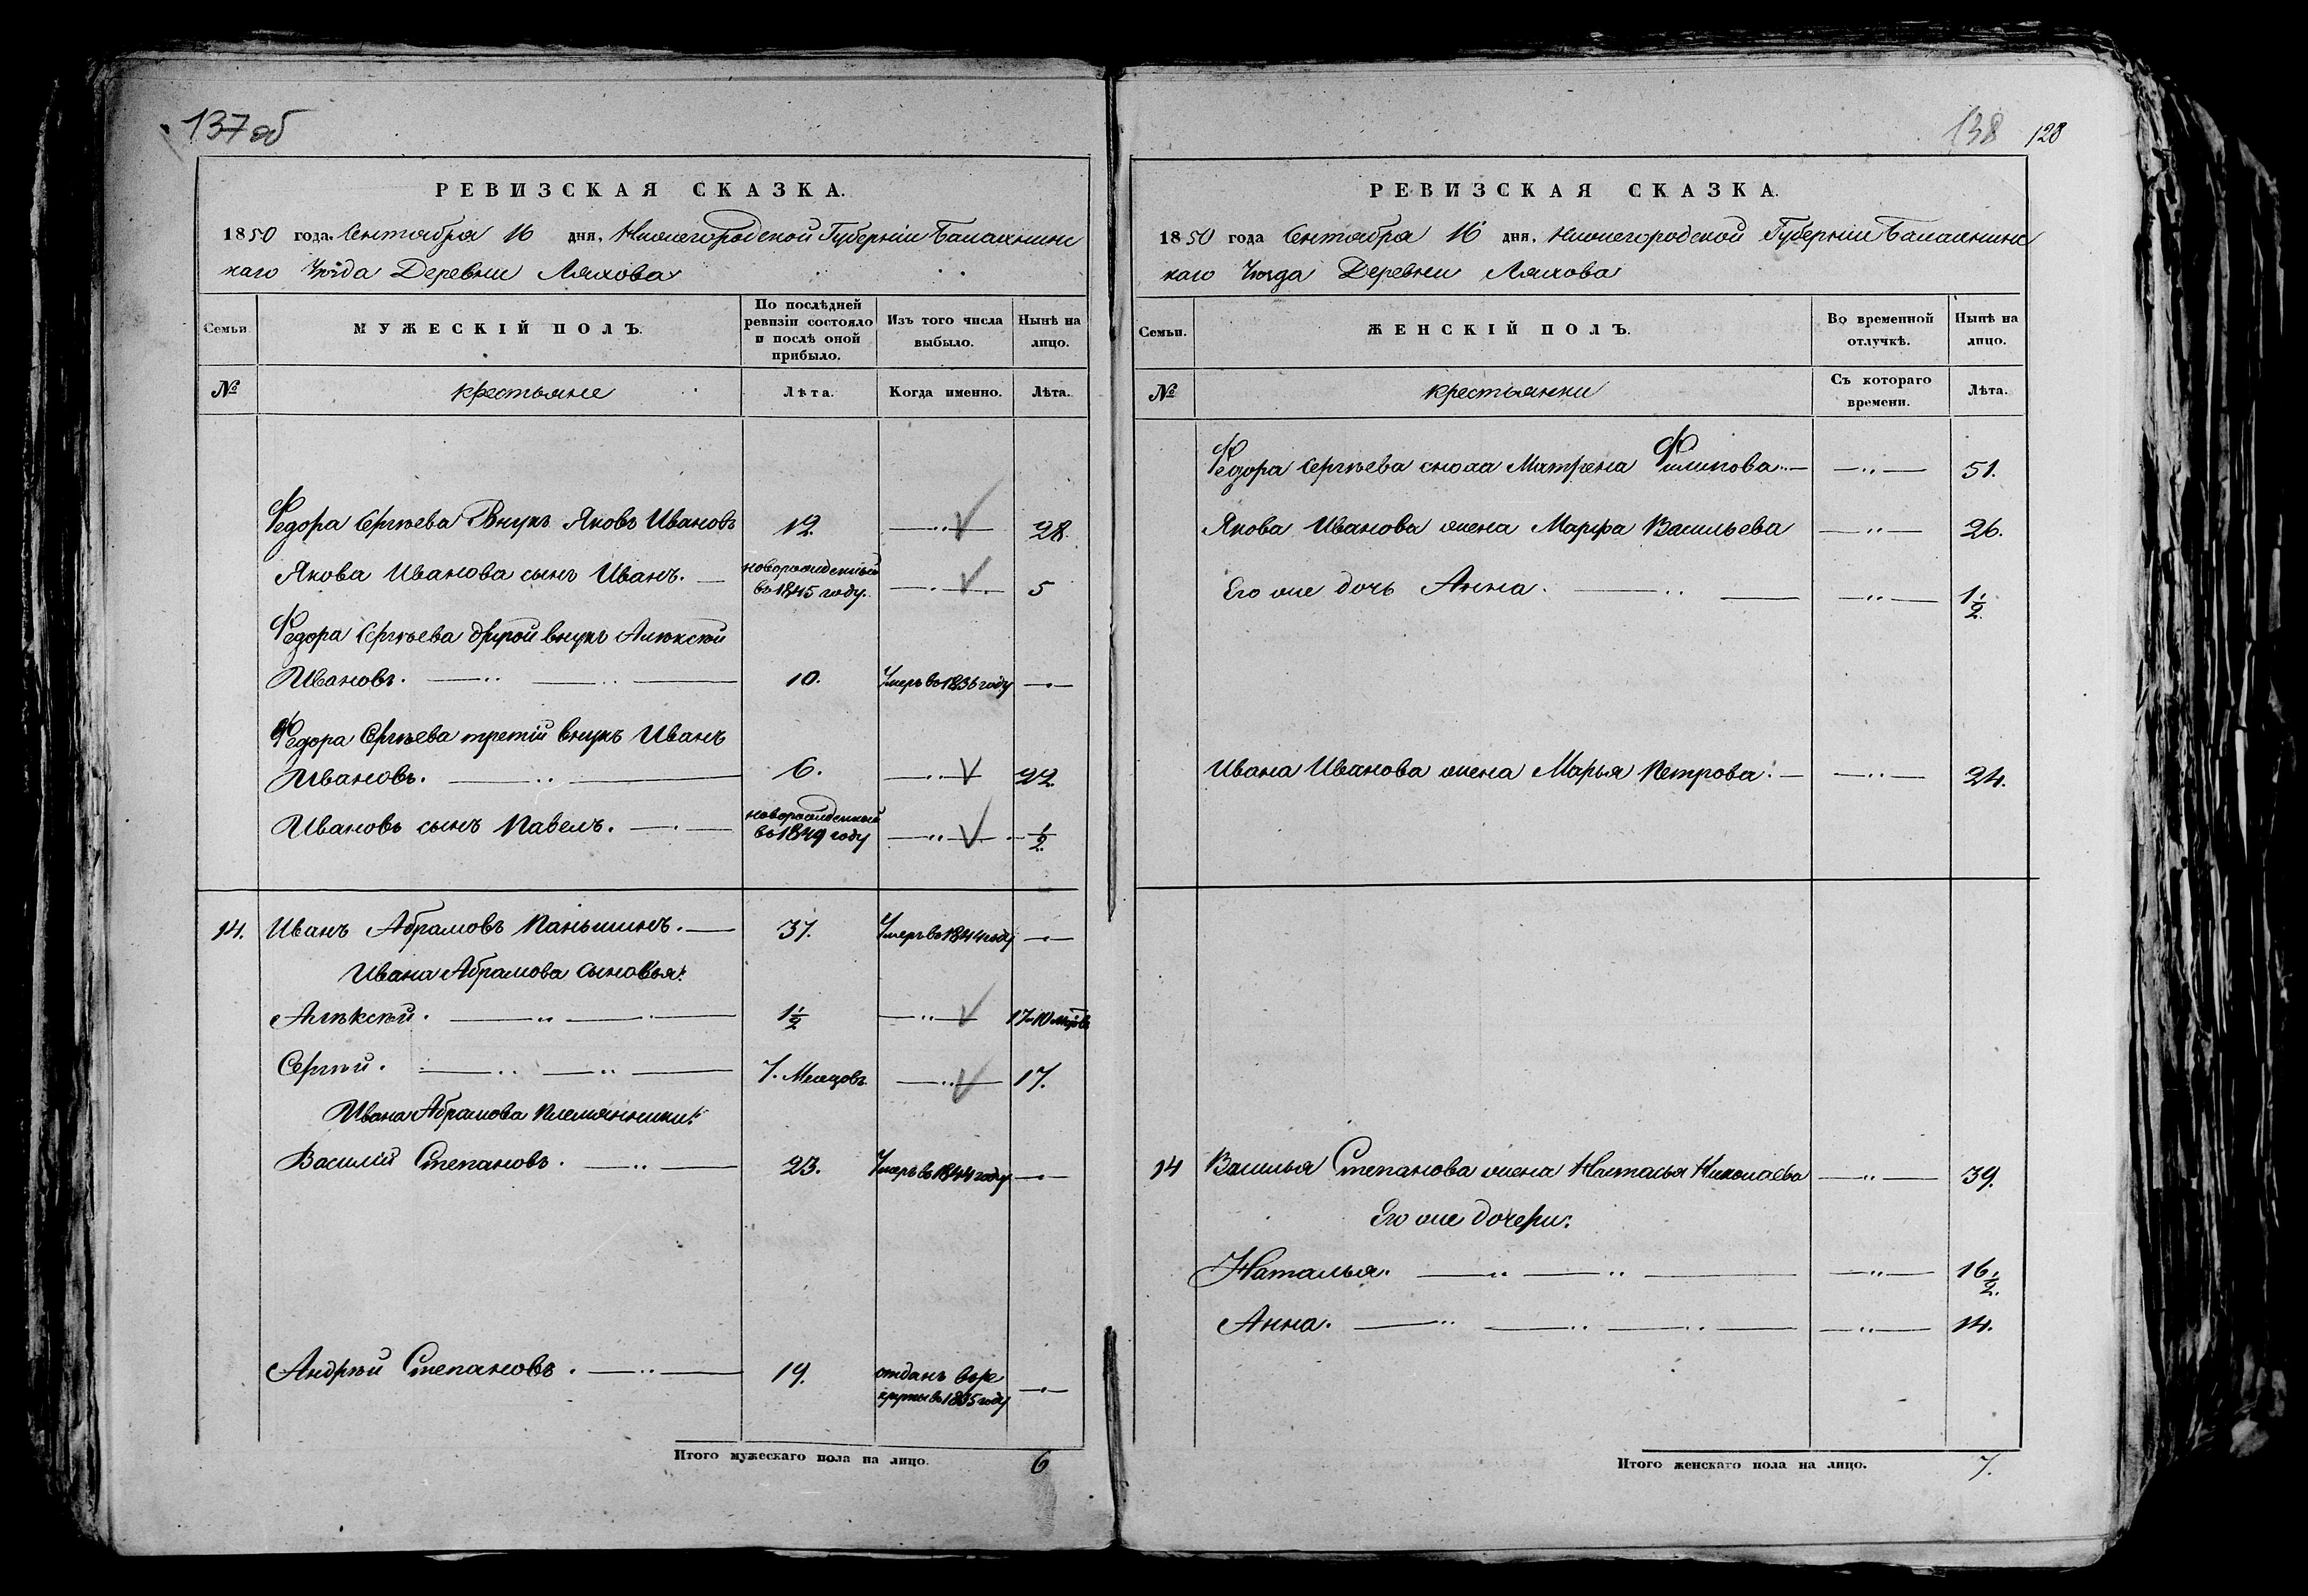 137 об
РЕВИЗСКАЯ СКАЗКА.
1850 года. Сентября 16 дня, Нижегородской Губерніи Балахнинс
каго Уѣзда Деревни Ляхова
Семьи.
МУЖЕСКІЙ ПОЛЪ.
По послѣдней
ревизіи состояло
и послѣ оной
прибыло.
Изъ того числа
выбыло.
Нынѣ на
лицо.
№
крестьяне
Лѣта.
Когда именно.
Лѣта.
Федора Сергѣева Внукъ Яковъ Ивановъ 12. —„— 28.
Якова Иванова сынъ Иванъ. — новорожденный
въ 1845 году. —„— 5
Федора Сергѣева другой внукъ Алѣксѣй
Ивановъ. 10. Умеръ въ 1836 году —
Федора Сергѣева третій внукъ Иванъ
Ивановъ. 6. —„— 22.
Ивановъ сынъ Павелъ. — новорожденный
въ 1849 году —„— ½
14. Иванъ Абрамовъ Паньшинъ. — 37. Умеръ въ 1844 году —
Ивана Абрамова Сыновья:
Алѣксѣй. 1½ —„— 17 10 мцовъ
Сергѣй. 7. Месецовъ. —„— 17.
Ивана Абрамова Племянники:
Василій Степановъ. 23. Умеръ въ 1844 году —
Андрѣй Степановъ. 19. отданъ въ ре
круты въ 1835 году —
Итого мужескаго пола на лицо. 6
138 128
РЕВИЗСКАЯ СКАЗКА.
1850 года Сентября 16 дня. Нижегородской Губерніи Балахнинс
каго Уѣзда Деревни Ляхова
Семьи.
ЖЕНСКІЙ ПОЛЪ.
Во временной
отлучкѣ.
Нынѣ на
лицо.
№
крестьянки
Съ котораго
времени.
Лѣта.
Федора Сергѣева сноха Матрена Филипова. —„— 51.
Якова Иванова жена Марфа Васильева —„— 26.
Его же дочь Анна. —„— 1½
Ивана Иванова жена Марья Петрова. —„— 24.
14 Василья Степанова жена Настасья Николаева —„— 39.
Его же дочери:
Наталья. —„— 16½
Анна. —„— 14.
Итого женскаго пола на лицо. 7.